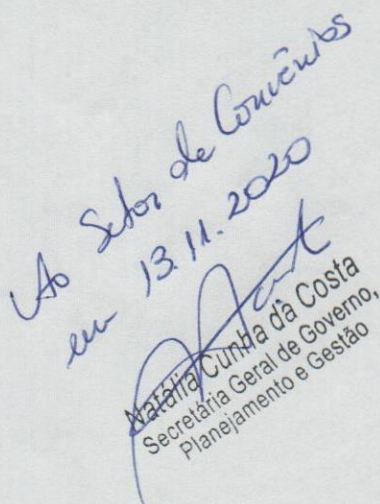 Ao Setor de Convênios
em 13.11.2020
Natália Cunha da Costa
Secretária Geral de Governo,
Planejamento e Gestão